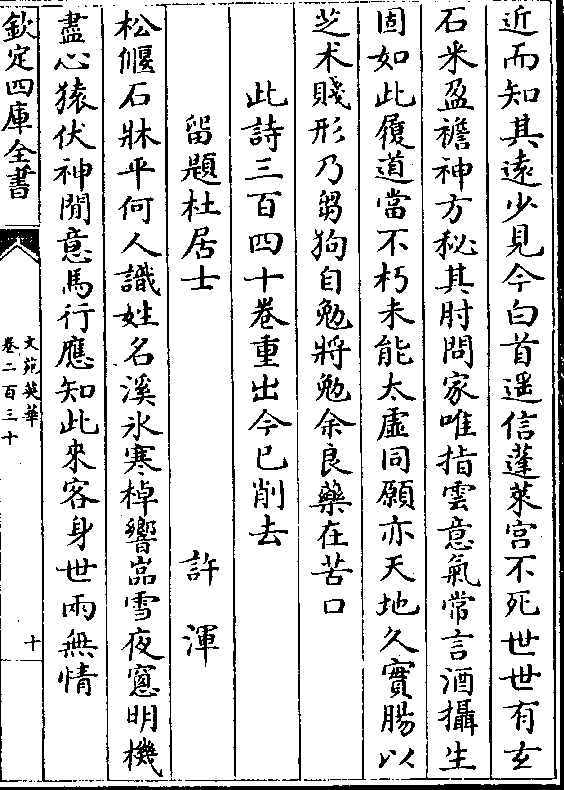 近而知其遠少見今白首遥信蓬萊宫不死世世有玄
石米盈襜神方秘其肘問家唯指雲意氣常言酒攝生
固如此履道當不朽未能太虚同願亦天地久實腸以
芝术賤形乃芻狗自勉將勉余良藥在苦口
此詩三百四十卷重出今已削去
留題杜居士
許渾
松偃石牀平何人識姓名溪氷寒棹響嵓雪夜窻明機
盡心猿伏神閒意馬行應知此來客身世兩無情
欽定四庫全書
文苑英華
卷二百三十
十